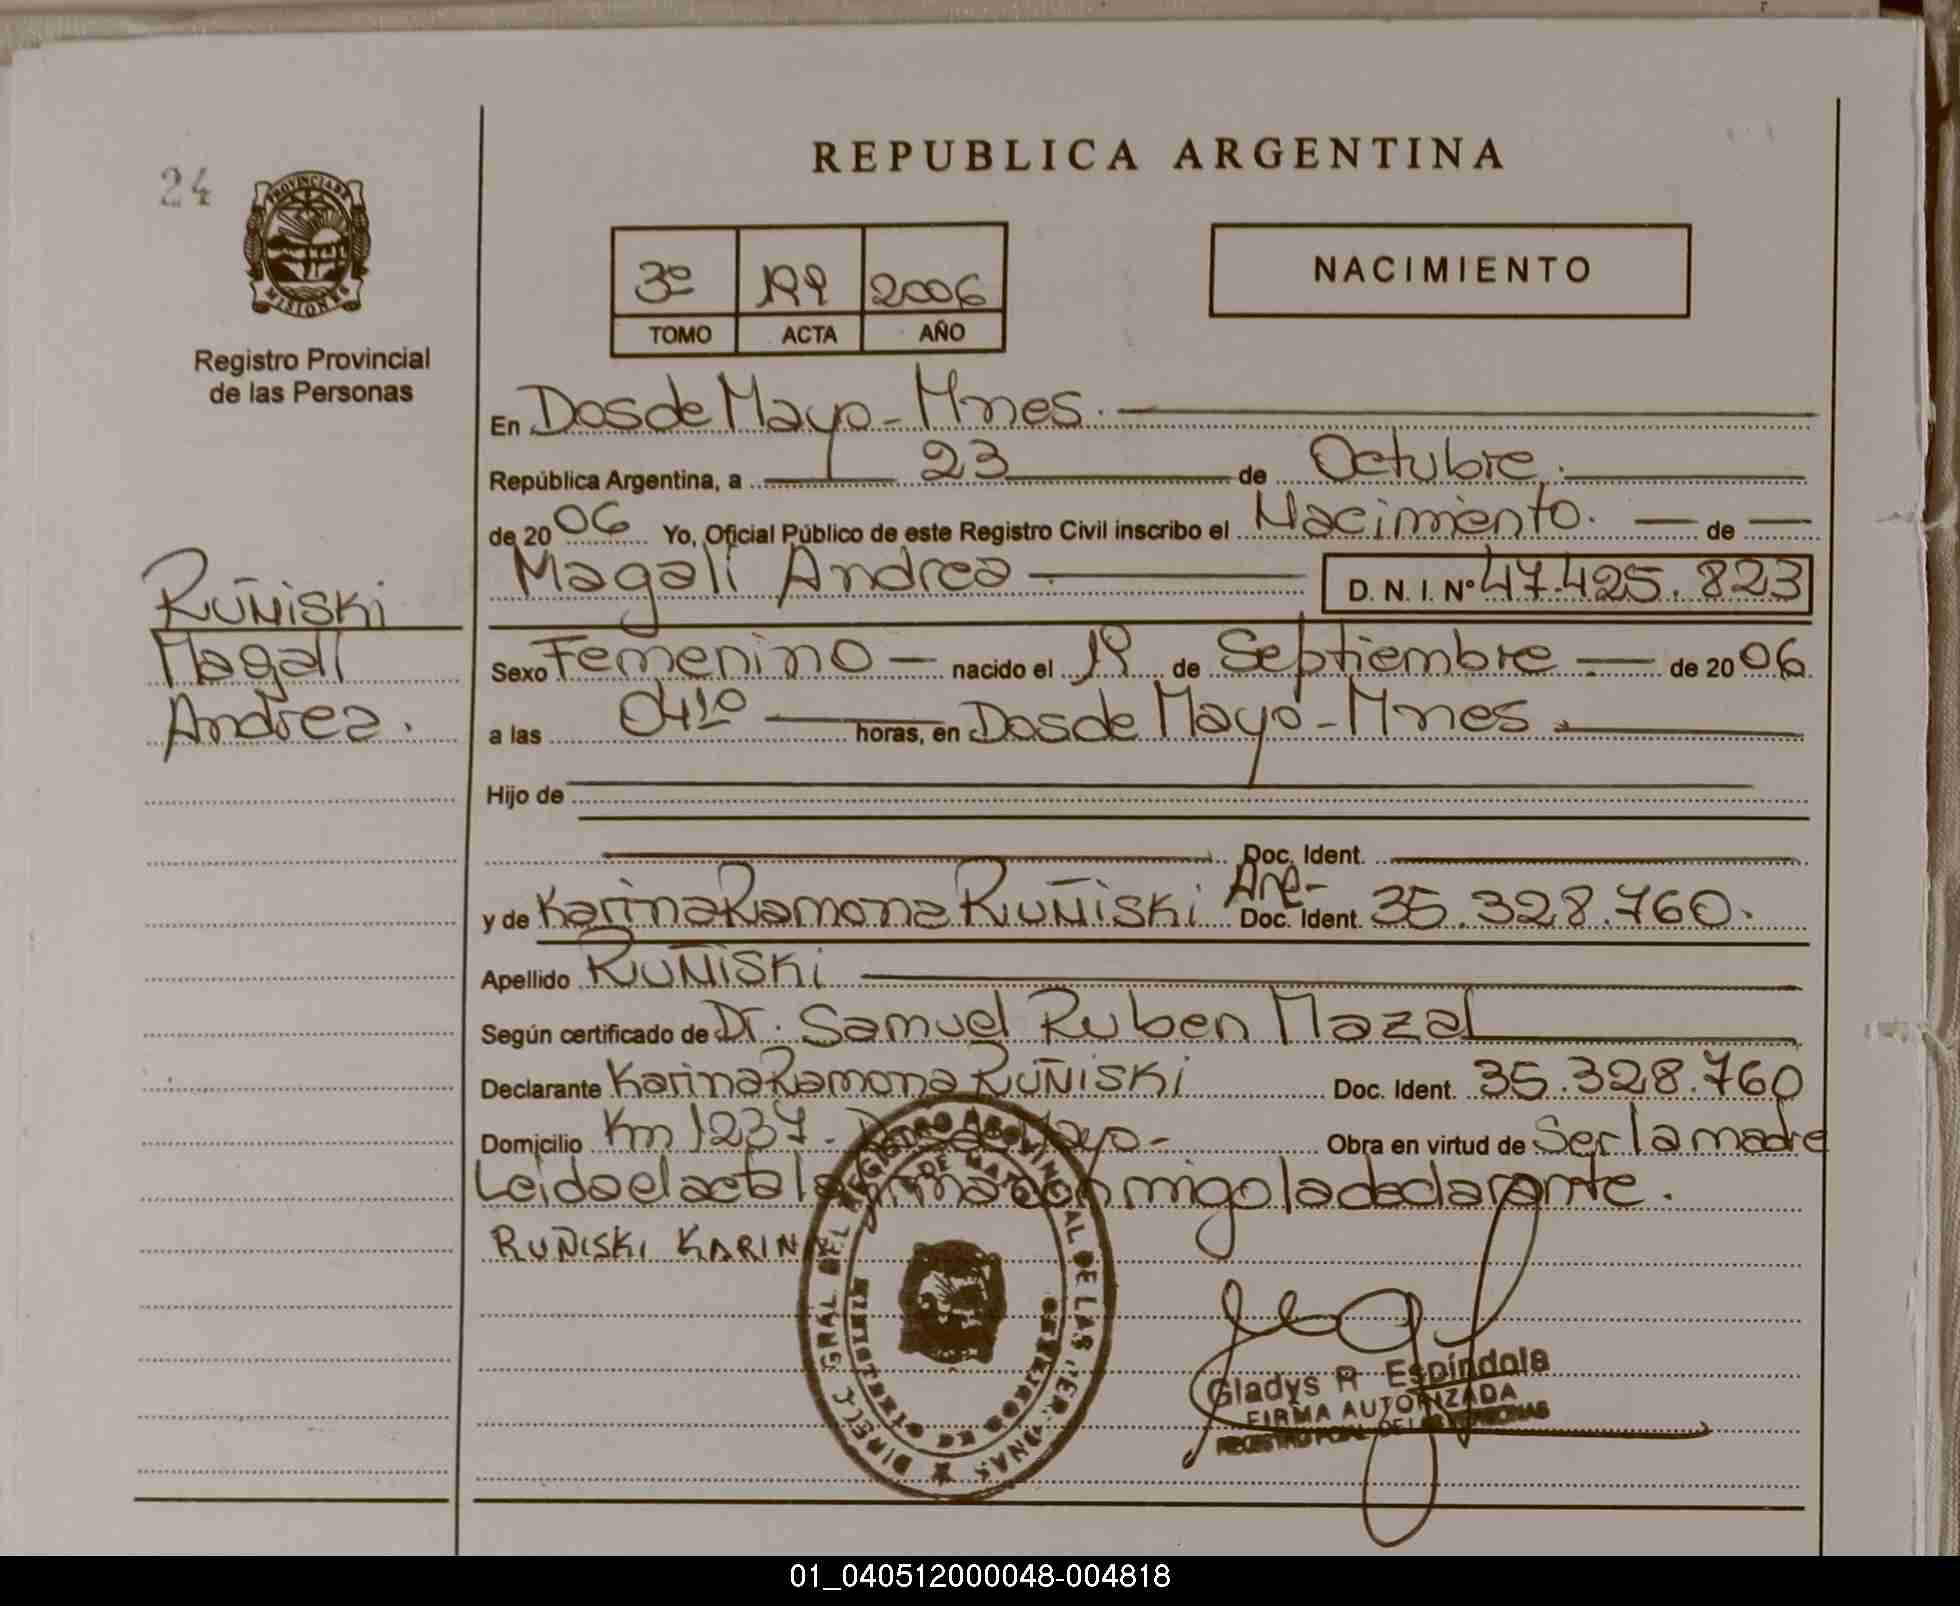 REPUBLICA ARGENTINA
24
PROVINCIA DE MISIONES
Registro Provincial
de las Personas
3º 199 2006
TOMO ACTA AÑO
NACIMIENTO
En Dos de Mayo - Mnes.
República Argentina, a 23 de Octubre.
de 2006 Yo, Oficial Público de este Registro Civil inscribo el Nacimiento. de
Magalí Andrea D. N. I. Nº 47.425.823
RUÑISKI
Magalí
Andrea.
Sexo Femenino nacido el 19 de Septiembre de 2006
a las 04¹⁰ horas, en Dos de Mayo - Mnes.
Hijo de
Doc. Ident.
y de Karina Ramona RUÑISKI Arg- Doc. Ident. 35.328.760.
Apellido RUÑISKI
Según certificado de Dr. Samuel Ruben Mazal
Declarante Karina Ramona RUÑISKI Doc. Ident. 35.328.760
Domicilio Km 1237. Dos de Mayo- Obra en virtud de Ser la madre
Leida el acta la firma conmigo la declarante.
RUÑISKI KARINA
DIREC. GRAL DEL REGISTRO PROVINCIAL DE LAS PERSONAS
Gladys R Espíndola
FIRMA AUTORIZADA
REGISTRO PCIAL DE LAS PERSONAS
01_040512000048-004818